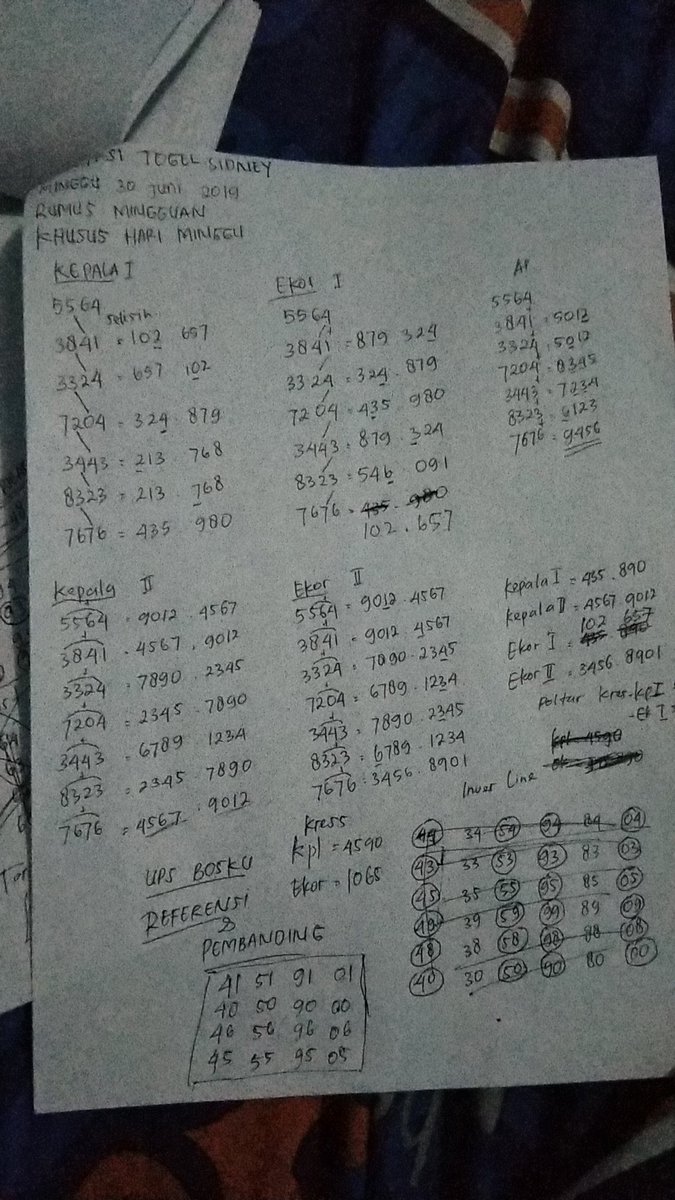 TOGEL SIDNEY
MINGGU 30 Juni 2019
RUMUS MINGGUAN
KHUSUS HARI MINGGU
KEPALA I
5564
selisih
3841 = 102 657
3324 = 657 102
7204 = 324 . 879
3443 = 213 . 768
8323 = 213 . 768
7676 = 435 980
Ekor I
5564
3841 = 879 324
3324 = 324 . 879
7204 = 435 980
3443 = 879 . 324
8323 = 546 091
7676 =
102 . 657
5564
3841 . 5012
3324 . 5012
7204 . 8345
3443 = 7234
8323 . 6123
7676 = 9456
Kepala II
5564 = 9012 . 4567
3841 . 4567 . 9012
3324 = 7890 . 2345
7204 = 2345 . 7890
3443 = 6789 . 1234
8323 = 2345 . 7890
7676 = 4567 . 9012
Ekor II
5564 = 9012 . 4567
3841 = 9012 . 4567
3324 = 7890 . 2345
7204 = 6789 . 1234
3443 = 7890 . 2345
8323 = 6789 . 1234
7676 . 3456 . 8901
Kepala I = 435 . 890
Kepala II = 4567 9012
102 657
Ekor I =
Ekor II = 3456 . 8901
Poltar Kres . kp I =
- Ek I =
kpl 4590
Inver Line
Kress
kpl = 4590
Ekor = 1065
UPS BOSKU
REFERENSI
&
PEMBANDING
41 51 91 01
40 50 90 00
46 56 96 06
45 55 95 05
44 34 54 94 84 04
43 33 53 93 83 03
45 35 55 95 85 05
39 59 99 89 09
48 38 58 98 88 08
40 30 50 90 80 00